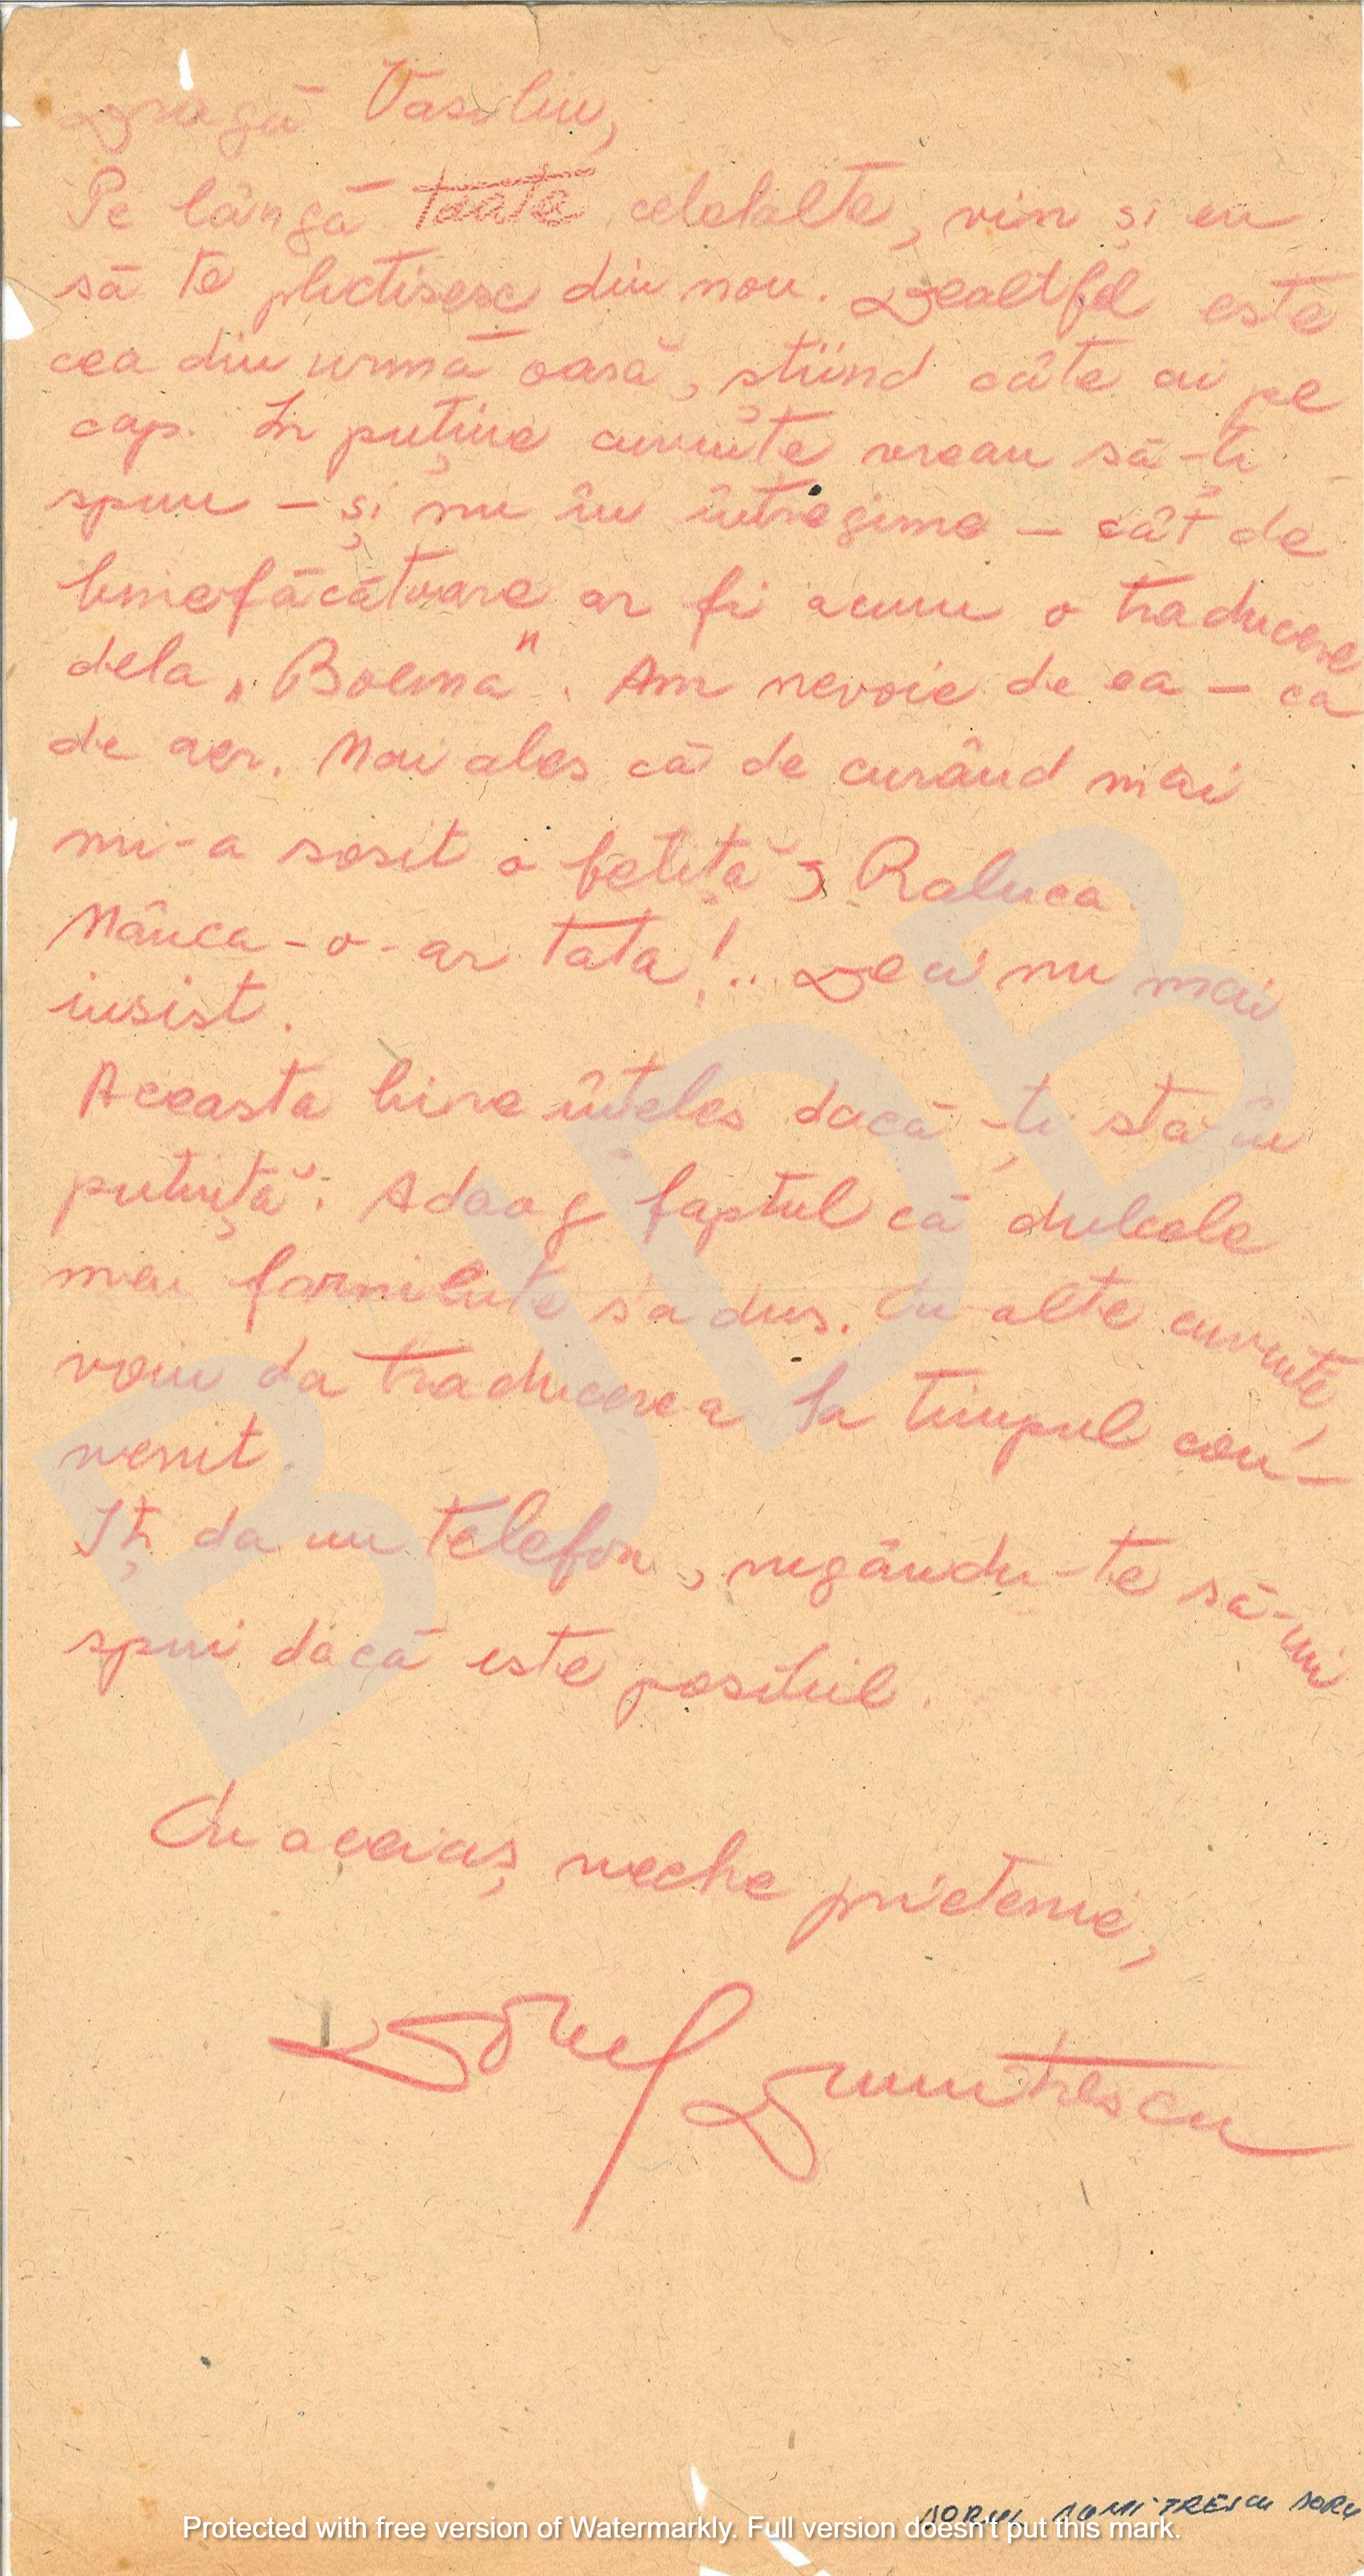 Dragă Vasiliu,
Pe lângă toate celelalte, vin și eu
să te plictisesc din nou. Dealtfel este
cea din urmă oară, știind câte ai pe
cap. In puține cuvinte vreau să-ți
spun – și nu în întregime – cât de
binefăcătoare ar fi acum o traducere
dela „Boema". Am nevoie de ea – ca
de aer. Mai ales că de curând mai
mi-a sosit o fetiță, Raluca.
Mânca-o-ar tata!.. Deci nu mai
insist.
Aceasta bine înțeles dacă-ți stă în
putință. Adaog faptul că dulcele
meu farniente s'a dus. Cu alte cuvinte,
voiu da traducerea la timpul con-
venit.
Iți da un telefon, rugându-te să-mi
spui dacă este posibil.
Cu aceiaș veche prietenie,
Dorul Dumitrescu
DORUL DUMITRESCU DORU
BJDB
Protected with free version of Watermarkly. Full version doesn't put this mark.